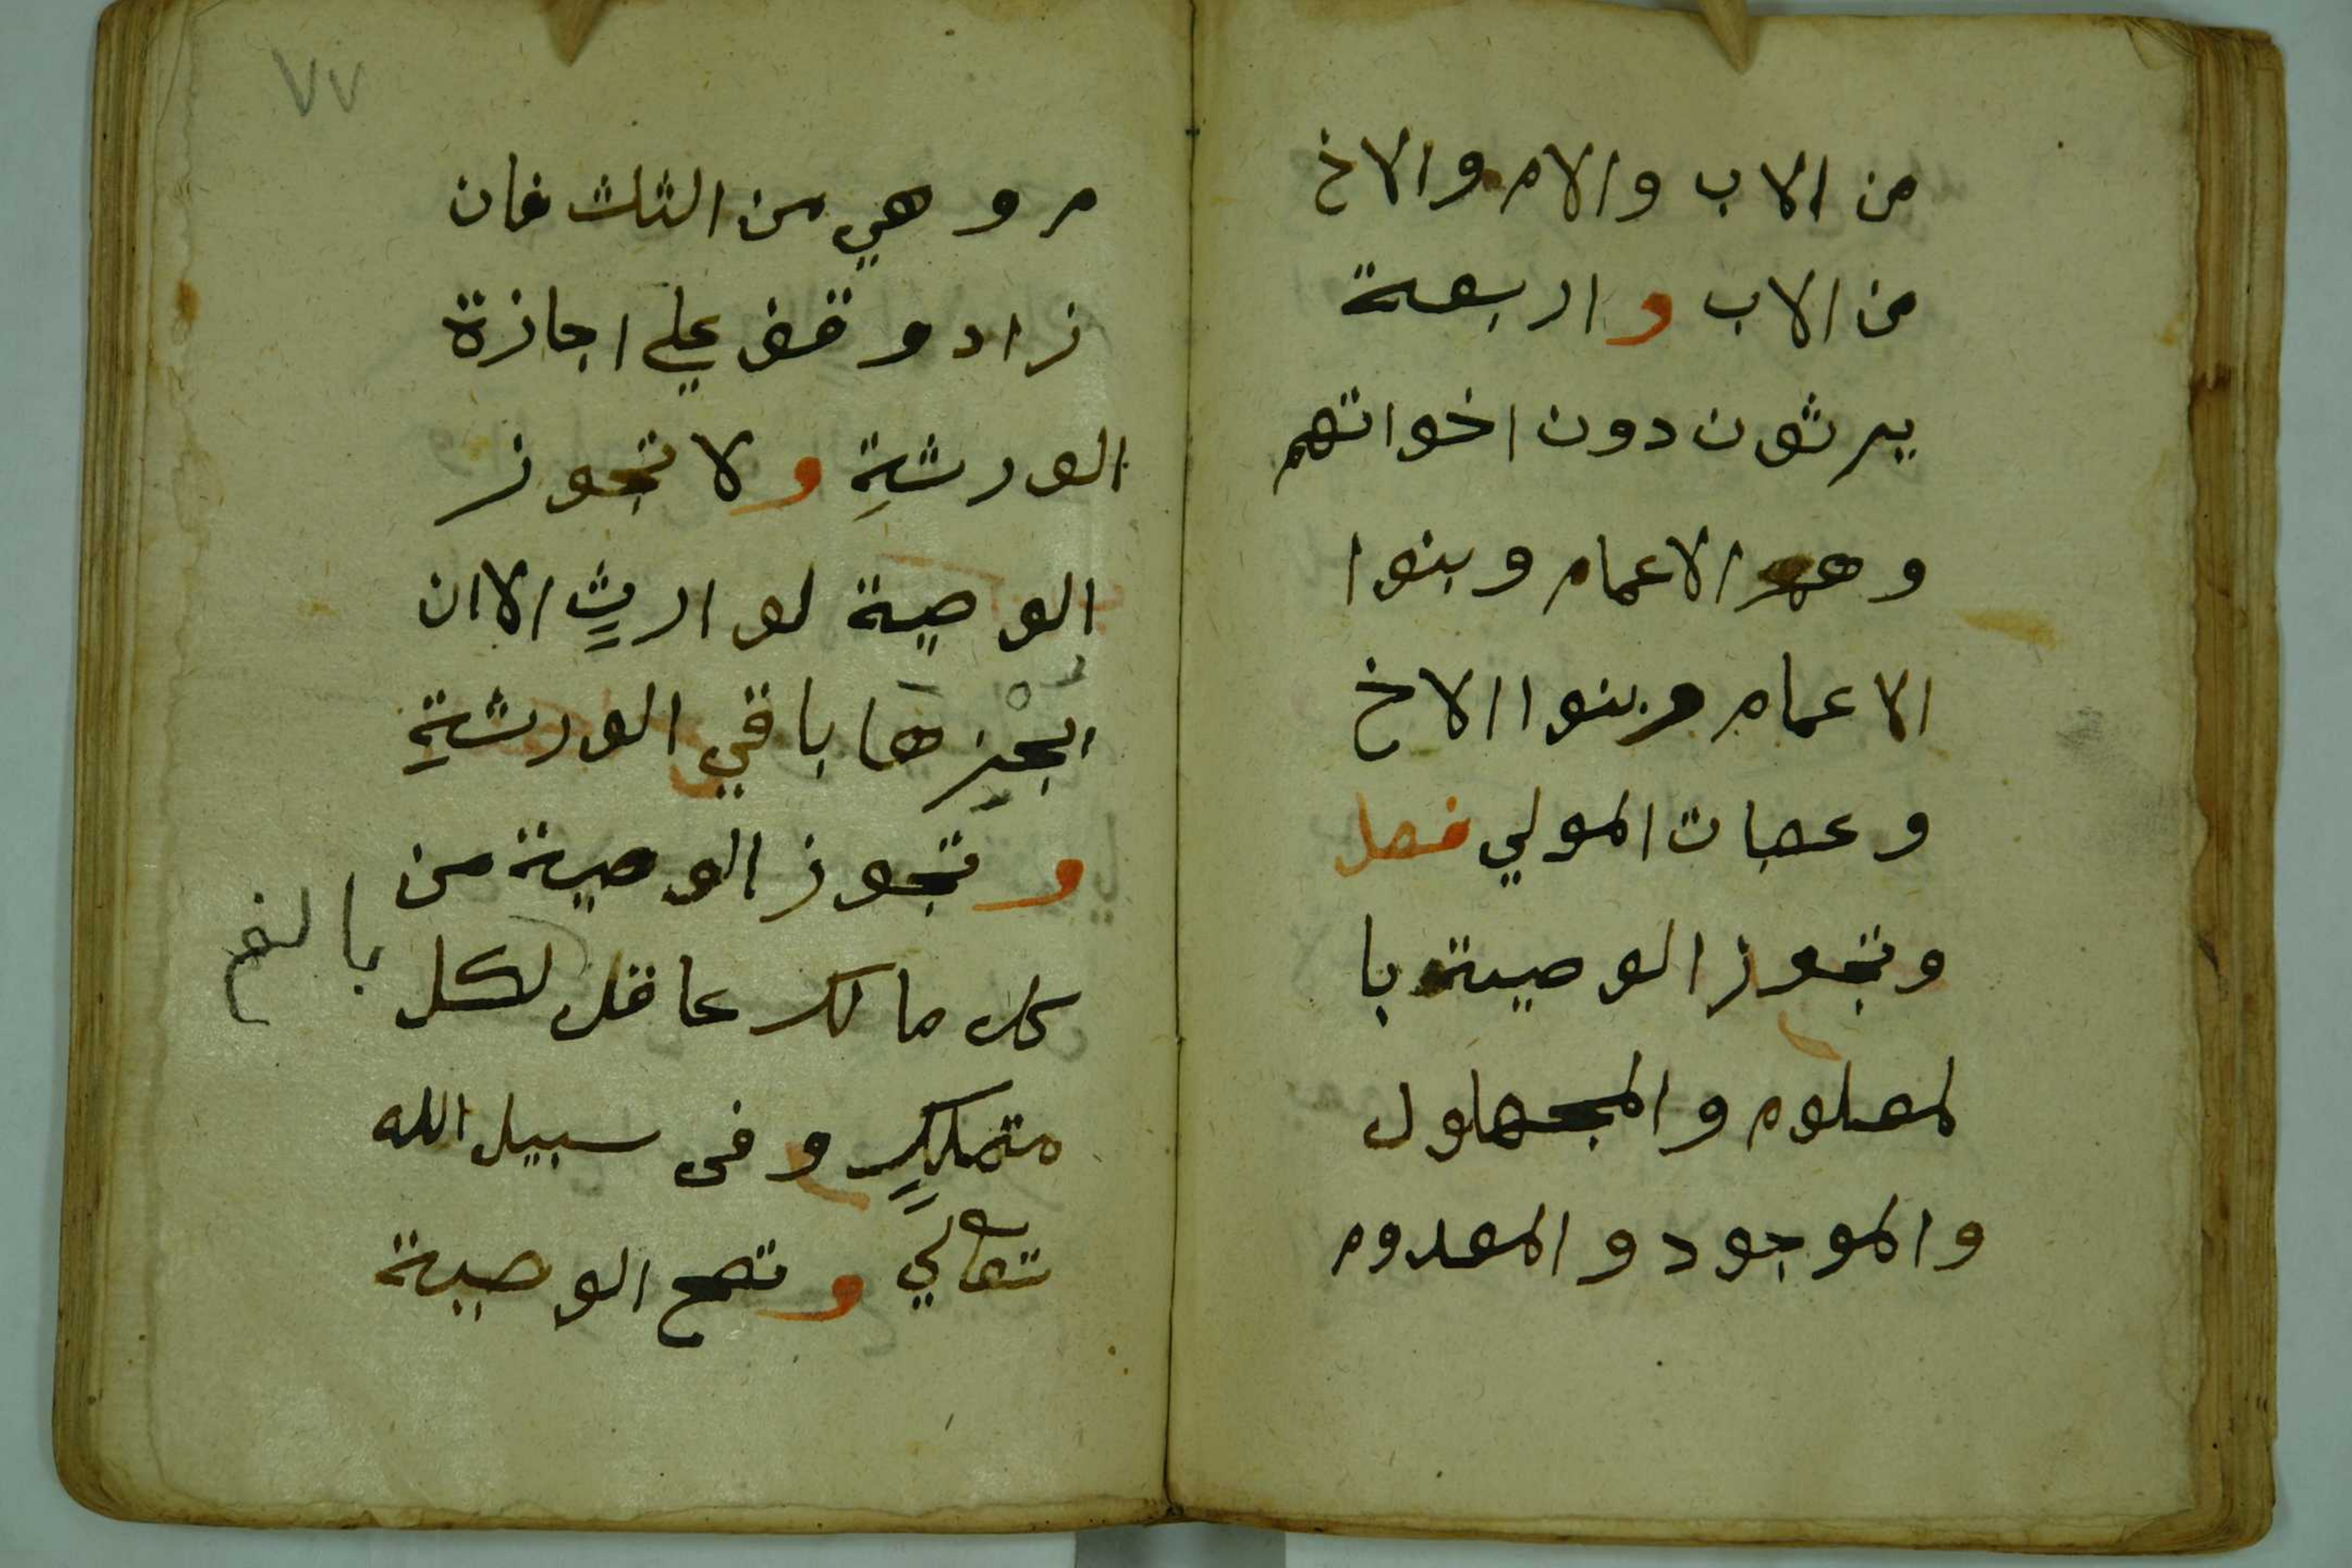 من الاب والام والاخ
من الاب واربعة
يرثون دون اخواتهم
وهم الاعمام وبنوا
الاعمام وبنوا الاخ
وعصبات المولي فصل
وتجوز الوصية با
لمعلوم والمجهول
والموجود والمعدوم
٧٧
م وهي من الثلث فان
زاد وقف علي اجازة
الورثةِ ولا تجوز
الوصية لوارثٍ الا ان
يجْيزهَا باقي الورثةِ
وتجوز الوصية من
كل مالك عاقل لكل
بالغ
متملكٍ وفى سبيل الله
تعالي وتصح الوصية